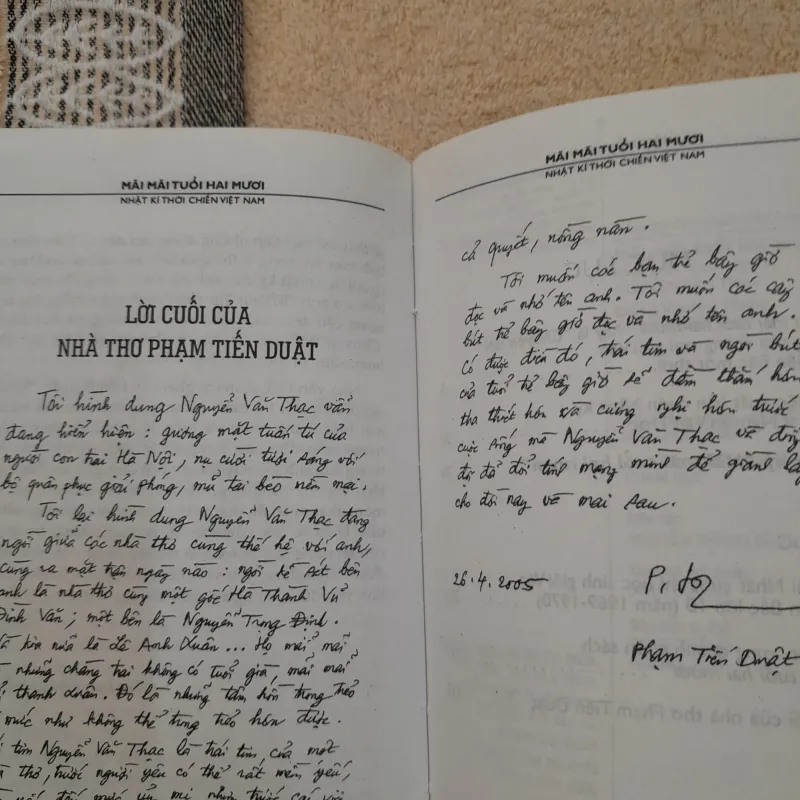 MÃI MÃI TUỔI HAI MƯƠI
NHẬT KÍ THỜI CHIẾN VIỆT NAM
LỜI CUỐI CỦA
NHÀ THƠ PHẠM TIẾN DUẬT
Tôi hình dung Nguyễn Văn Thạc vẫn
đang hiển hiện : gương mặt tuấn tú của
người con trai Hà Nội, nụ cười tươi sáng với
bộ quân phục giải phóng, mũ tai bèo mềm mại.
Tôi lại hình dung Nguyễn Văn Thạc đang
ngồi giữa các nhà thơ cùng thế hệ với anh,
cùng ra mặt trận ngày nào : ngồi kề sát bên
anh là nhà thơ cùng một gốc Hà Thành Vũ
Đình Văn ; một bên là Nguyễn Trọng Định.
Và kia nữa là Lê Anh Xuân ... Họ mãi mãi
là những chàng trai không có tuổi già, mãi mãi
thanh xuân. Đó là những tâm hồn trong trẻo
mức như không thể trong trẻo hơn được.
tim Nguyễn Văn Thạc là trái tim của một
thơ, trước người yêu có thể rất mềm yếu,
đến mức ủy mị nhưng trước cái
MÃI MÃI TUỔI HAI MƯƠI
NHẬT KÍ THỜI CHIẾN VIỆT NAM
cả quyết, nồng nàn.
Tôi muốn các bạn trẻ bây giờ
đọc và nhớ tên anh. Tôi muốn các cây
bút trẻ bây giờ đọc và nhớ tên anh.
Có được điều đó, trái tim và ngòi bút
của tuổi trẻ bây giờ sẽ đằm thắm hơn
tha thiết hơn và cương nghị hơn trước
cuộc sống mà Nguyễn Văn Thạc và đồng
đội đã đổi tính mạng mình để giành lấy
cho đời nay và mai sau.
26.4.2005
Phạm Tiến Duật